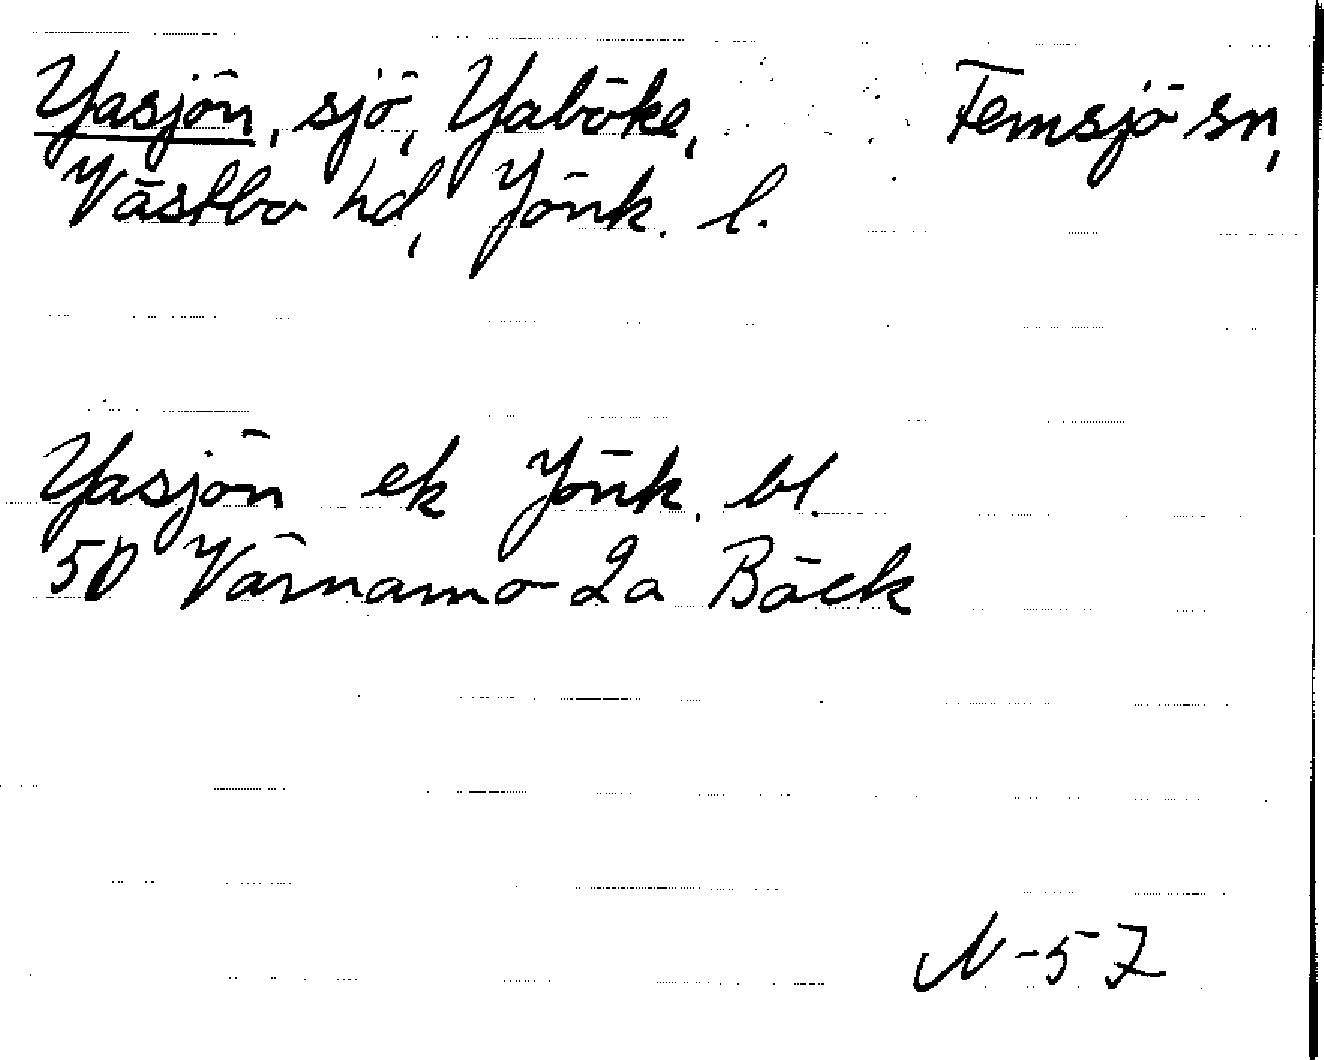 Yasjön, sjö, Yaböke, Femsjö sn,
Västbo hd, Jönk. l.
Yasjön ek Jönk. bl.
5D Värnamo 2a Bäck
N-57